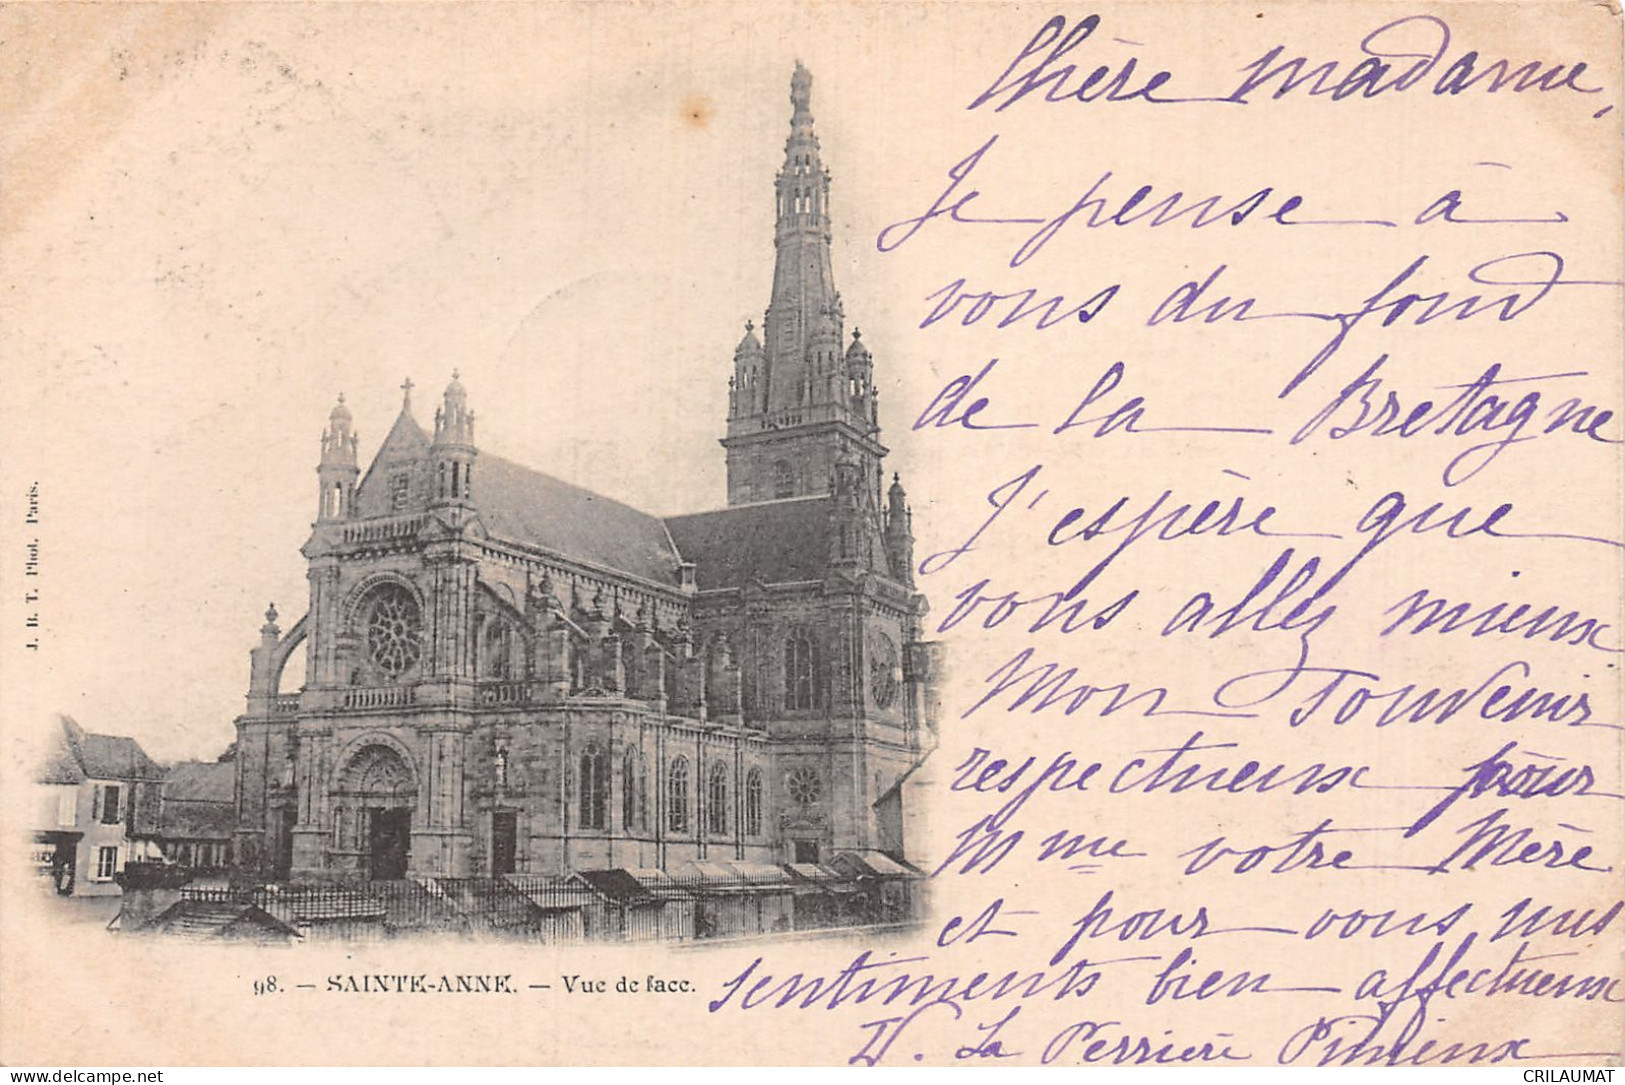 Chère madame,
Je pense à
vous du fond
de la Bretagne
J'espère que
vous allez mieux
Mon souvenir
respectueux pour
Mme votre Mère
et pour vous mes
sentiments bien affectueux
La Perrière
98. — SAINTE-ANNE. — Vue de face.
J. B. T. Phot. Paris.
delcampe.net
CRILAUMAT